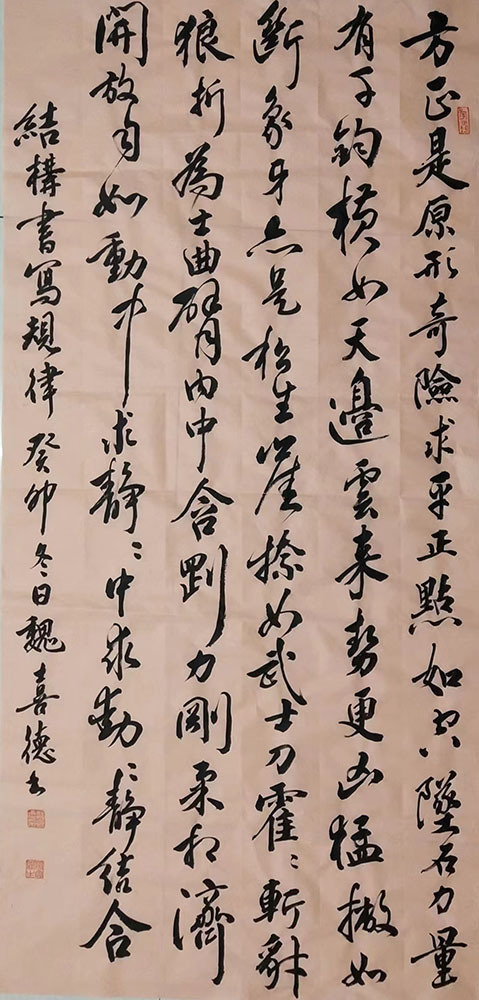 方正是原形奇險求平正點如空墜石力量
有千鈞橫如天邊雲来勢更凶猛撇如
斷象牙亦是松生崖捺如武士刀霍〻斬豺
狼折為士曲臂内中含剛力剛柔相濟
開放自如動中求靜〻中求動〻靜結合
結構書寫規律癸卯冬日魏喜德書